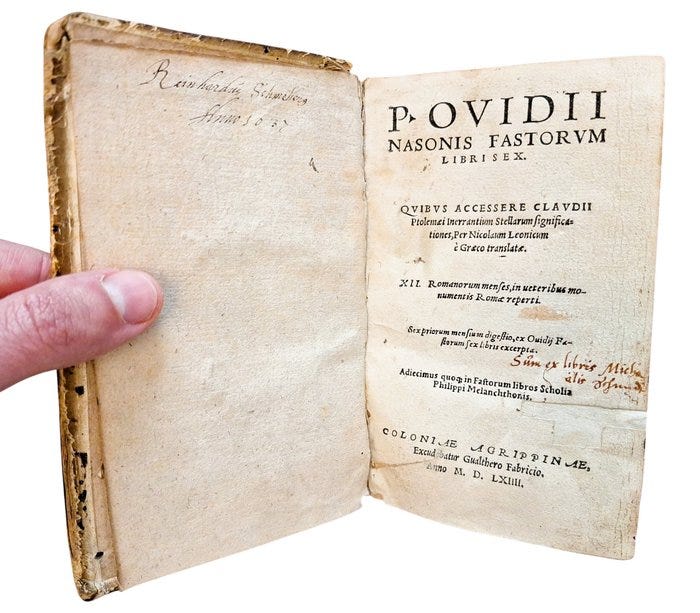 Reinhardus
Anno 1637
P. OVIDII
NASONIS FASTORVM
LIBRI SEX.
QVIBVS ACCESSERE CLAVDII
Ptolemæi Inerrantium Stellarum significa-
tiones, Per Nicolaum Leonicum
è Græco translatæ.
XII. Romanorum menses, in ueteribus mo-
numentis Romæ reperti.
Sex priorum mensium digestio, ex Ouidij Fa-
storum sex libris excerpta.
Sum ex libris Micha
ëlis
Adiecimus quoq; in Fastorum libros Scholia
Philippi Melanchthonis.
COLONIAE AGRIPPINAE,
Excudebatur Gualthero Fabricio.
Anno M. D. LXIIII.